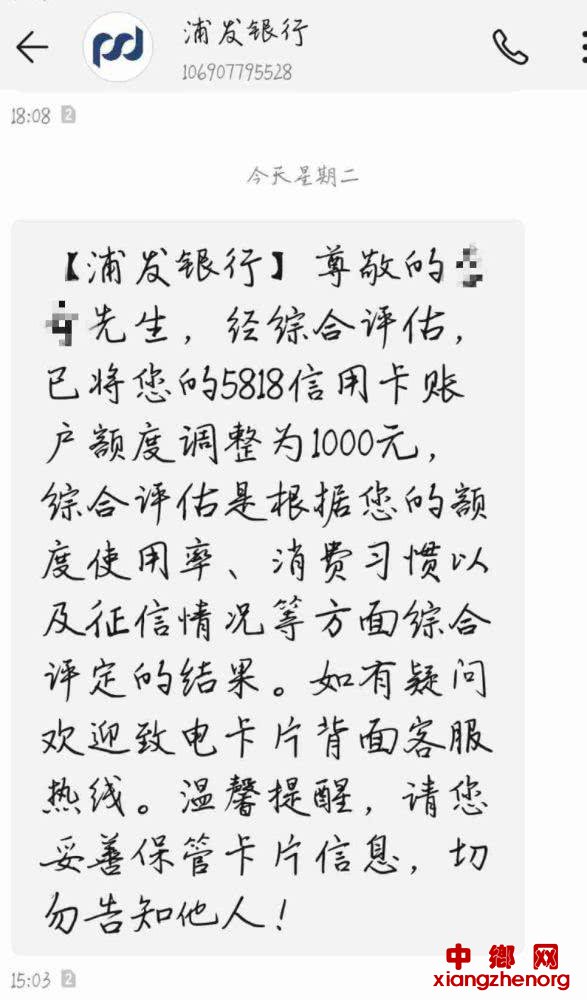 浦发银行
106907795528
18:08 2
今天星期二
【浦发银行】尊敬的
先生，经综合评估，
已将您的5818信用卡账
户额度调整为1000元，
综合评估是根据您的额
度使用率、消费习惯以
及征信情况等方面综合
评定的结果。如有疑问
欢迎致电卡片背面客服
热线。温馨提醒，请您
妥善保管卡片信息，切
勿告知他人！
15:03 2
中鄉网
xiangzhenorg